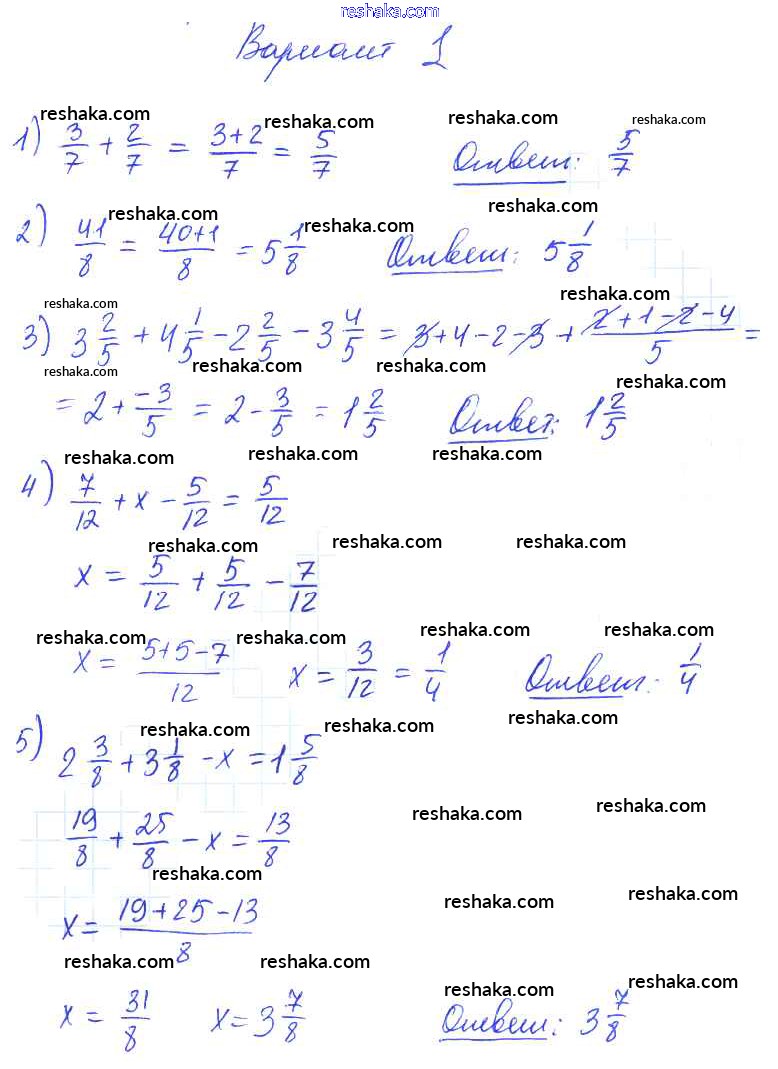 reshaka.com
Вариант 1
reshaka.com reshaka.com reshaka.com reshaka.com
1) 3/7 + 2/7 = (3+2)/7 = 5/7 Ответ: 5/7
reshaka.com reshaka.com reshaka.com
2) 41/8 = (40+1)/8 = 5 1/8 Ответ: 5 1/8
reshaka.com reshaka.com
3) 3 2/5 + 4 1/5 - 2 2/5 - 3 4/5 = 3+4-2-3 + (2+1-2-4)/5 =
reshaka.com reshaka.com reshaka.com reshaka.com
= 2 + (-3)/5 = 2 - 3/5 = 1 2/5 Ответ: 1 2/5
reshaka.com reshaka.com reshaka.com
4) 7/12 + x - 5/12 = 5/12
reshaka.com reshaka.com reshaka.com
x = 5/12 + 5/12 - 7/12
reshaka.com reshaka.com reshaka.com reshaka.com
x = (5+5-7)/12 x = 3/12 = 1/4 Ответ: 1/4
reshaka.com reshaka.com reshaka.com
5) 2 3/8 + 3 1/8 - x = 1 5/8
reshaka.com reshaka.com
19/8 + 25/8 - x = 13/8
reshaka.com reshaka.com reshaka.com
x = (19+25-13)/8
reshaka.com reshaka.com reshaka.com reshaka.com
x = 31/8 x = 3 7/8 Ответ: 3 7/8